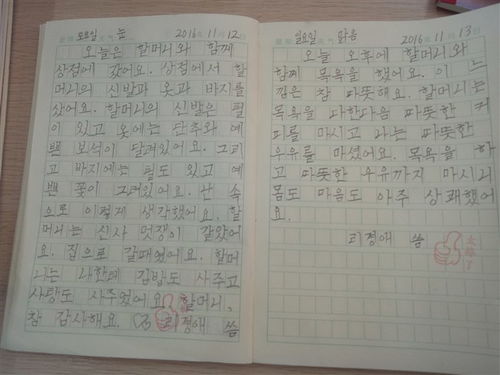 토요일 눈 2016 11 12
오늘은 할머니와 함께
상점에 갔어요. 상점에서 할
머니의 신발과 옷과 바지를
샀어요. 할머니의 신발은 털
이 있고 옷에는 단추와 예
쁜 보석이 달려있어요. 그리
고 바지에는 털도 있고 예
쁜 꽃이 그려있어요. 난 속
으로 이렇게 생각했어요. 할
머니는 신사 멋쟁이 같았어
요. 집으로 갈때였어요. 할머
니는 나한테 김밥도 사주고
사탕도 사주었어요. 할머니,
참 감사해요. 리정애 씀
일요일 맑음 2016 11 13
오늘 오후에 할머니와
함께 목욕을 했어요. 이 느
낌은 참 따뜻해요. 할머니는
목욕을 다한다음 따뜻한 커
피를 마시고 나는 따뜻한
우유를 마셨어요. 목욕을 하
고 따뜻한 우유까지 마시니
몸도 마음도 아주 상쾌했어
요.
리정애 씀
太棒了